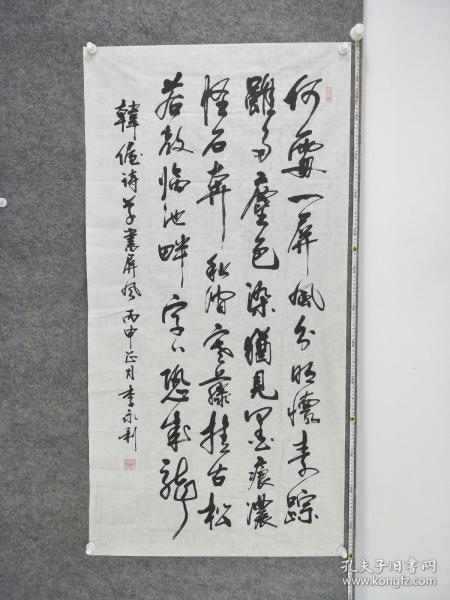 何處一屏風分明懷素踪
雖多塵色染猶見墨痕濃
怪石奔秋澗寒藤挂古松
若教临池畔字々恐成龍
韓偓诗草書屏风丙申正月李永利
孔夫子旧书网
www.kongfz.com